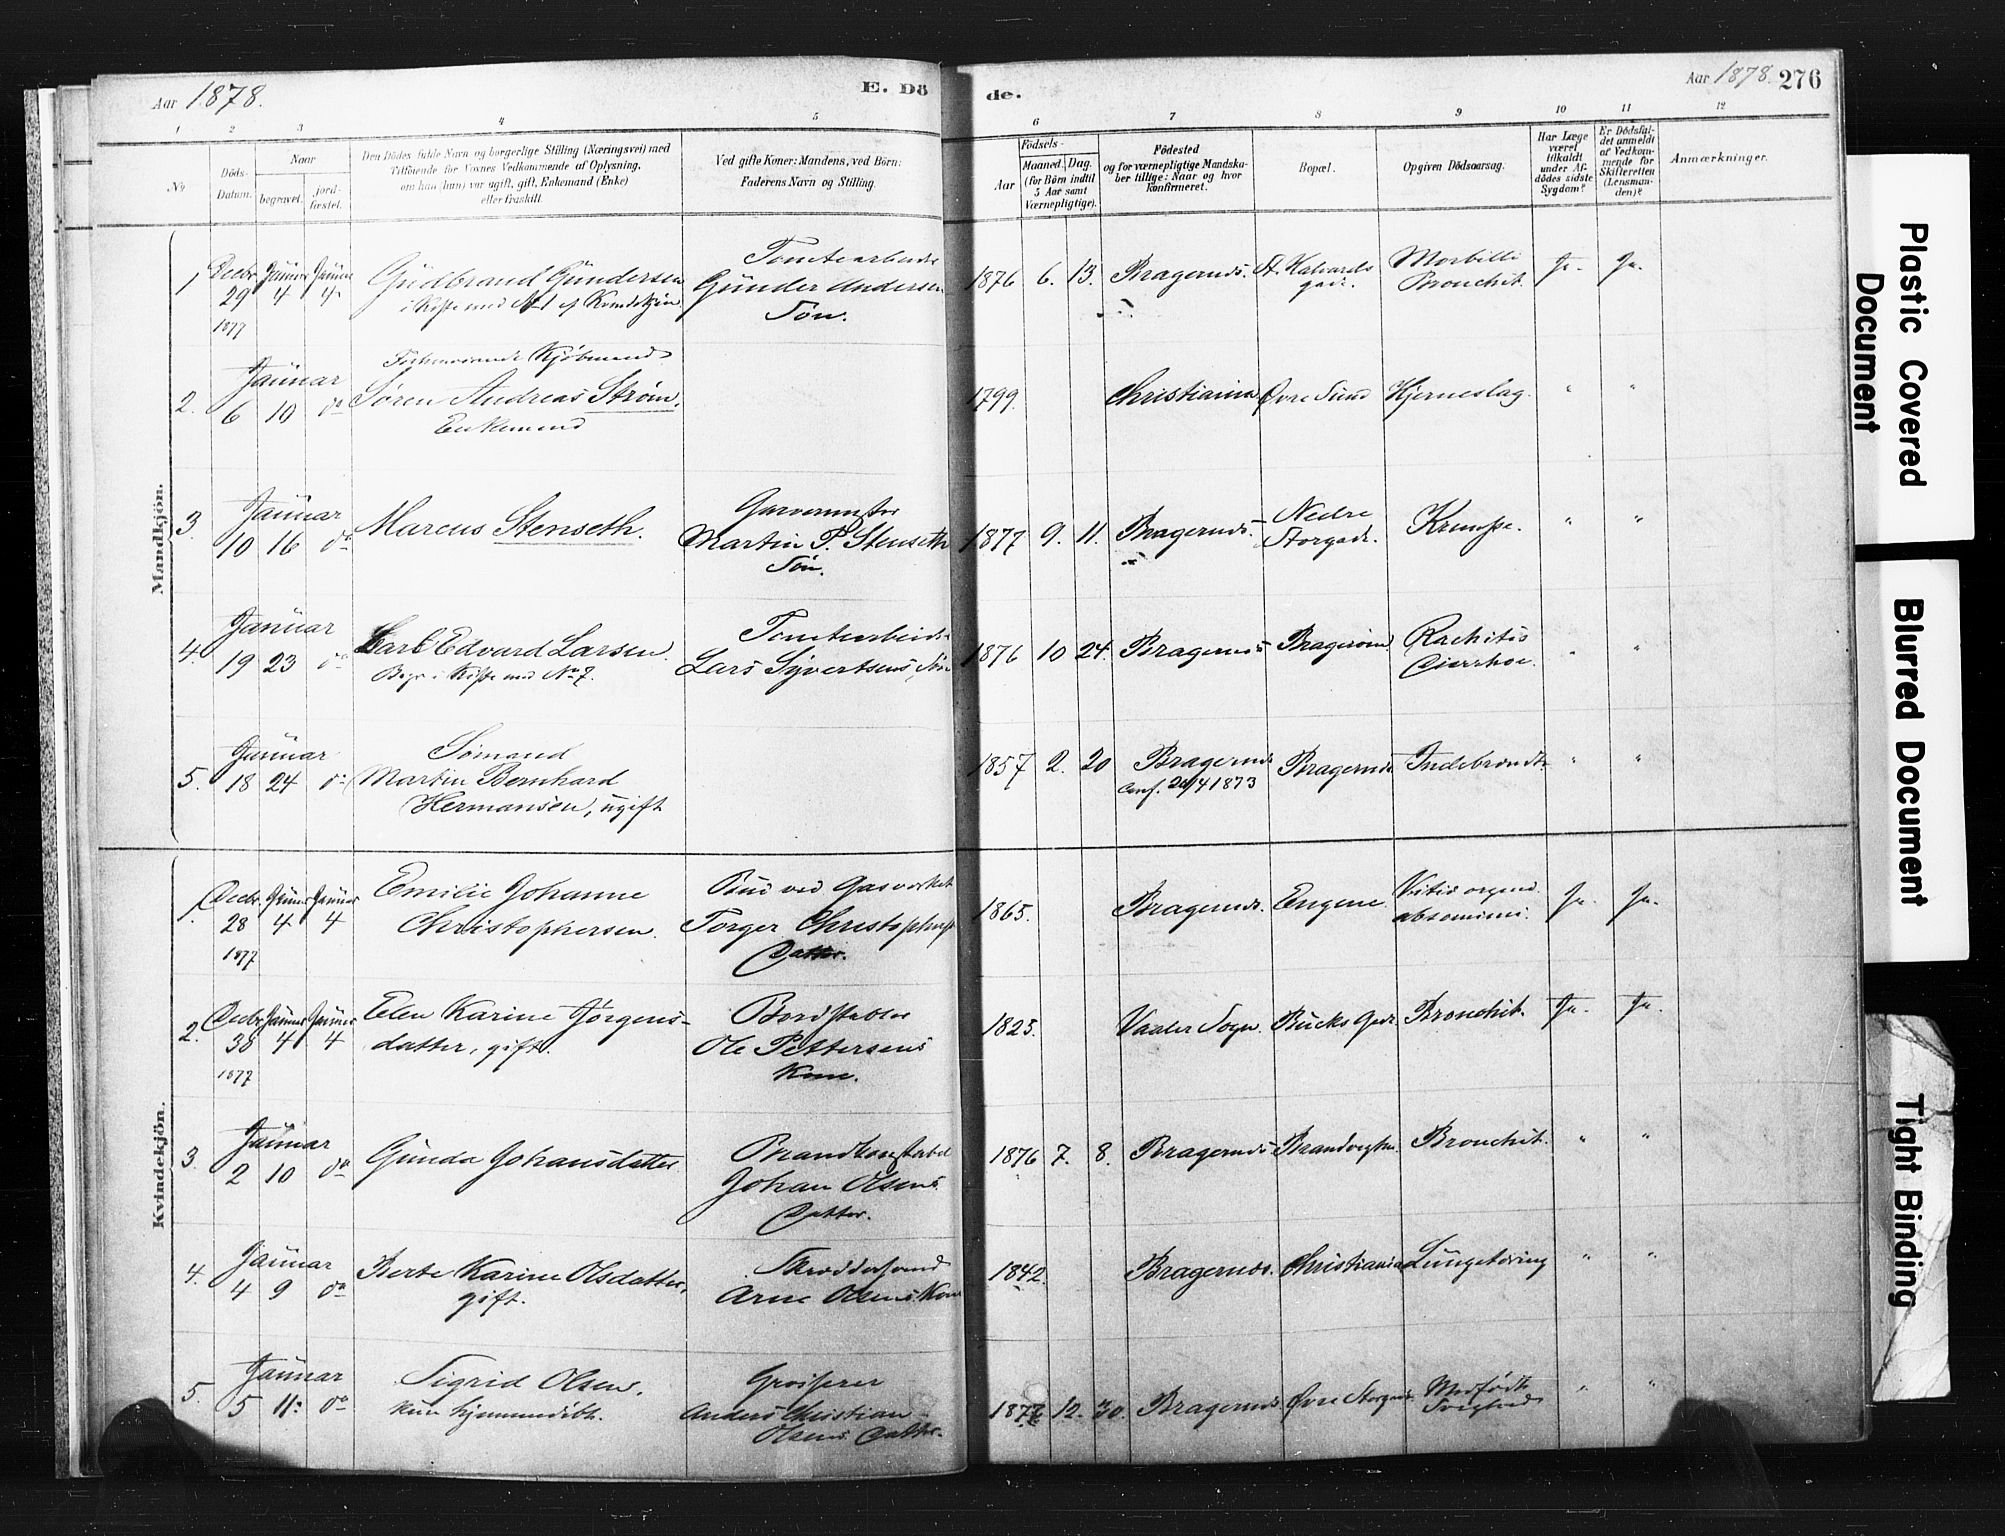 Aar 1878.
E. Dö
de.
Aar 1878. 276
1 2 3 4 5 6 7 8 9 10 11 12
No
Döds-
Datum.
Naar
begravet.
jord-
fæstet.
Den Dödes fulde Navn og borgerlige Stilling (Næringsvei) med
Tilföiende for Voxnes Vedkommende af Oplysning,
om han (hun) var ugift, gift, Enkemand (Enke)
eller fraskilt.
Ved gifte Koner: Mandens, ved Börn:
Faderens Navn og Stilling.
Födsels-
Aar
Maaned.
Dag.
(for Börn indtil
5 Aar samt
Værnepligtige).
Födested
og for værnepligtige Mandska-
ber tillige: Naar og hvor
konfirmeret.
Bopæl.
Opgiven Dödsaarsag.
Har Læge
været
tilkaldt
under Af-
dödes sidste
Sygdom?
Er Dödsfal-
det anmeldt
af Vedkom-
mende for
Skifteretten
(Lensman-
den)?
Anmærkninger.
Mandkjön.
1 Decbr 29 1877 Januar 4 Januar 4
Gudbrand Gundersen
i Kiste med No 1 af Kvindekjøn
Gunder Andersens
Søn.
1876 6. 13. Bragernæs. St. Halvards
gade. Morbilli
Bronchit. Ja. Ja.
2. Januar 6 10 do
Forhenværende Kjøbmand
Søren Andreas Strøm.
Enkemand
1799. Christiania Øvre Sund Hjerneslag. " "
3 Januar 10 16 do
Marcus Stenseth.
Garvermester
Martin P. Stenseth
Søn.
1877 9. 11. Bragernæs. Nedre
Storgade. Krampe. " "
4. Januar 19 23 do
Carl Edvard Larsen.
Begr. i Kiste med No 7.
Lars Syvertsens Søn
1876 10 24. Bragernæs Bragerøen Rachitis
Diarrhoe. " "
5. Januar 18 24 do
Sømand
Martin Bernhard
Hermansen, ugift
1857 2. 20 Bragernæs
Conf. 20/4 1873 Bragernæs. " "
Kvindekjön.
1. Decbr. 28 1877 Januar 4 Januar 4
Emilie Johanne
Christophersen.
Bud ved Gasverket
Torger Christophersens
Datter.
1865. Bragernæs. Engene. Vitia organ.
abdomini. Ja. Ja.
2. Decbr 30 1877 Januar 4 Januar 4
Elen Karine Jørgens-
datter, gift.
Bordstabler
Ole Pettersens
Kone.
1825. Vaaler Sogn. Bucks Gade. Bronchit. Ja. Ja.
3. Januar 2 10 do
Gunda Johansdatter
Brandkonstabel
Johan Olsens
Datter.
1876 7. 8. Bragernæs Brandvagten. Bronchit. " "
4. Januar 4 9 do
Berte Karine Olsdatter,
gift.
Skræddersvend
Arne Olsens Kone
1842. Bragernæs. Christiania Lungetæring " "
5. Januar 5 11. do
Sigrid Olsen.
kun hjemmedøbt.
Grosserer
Anders Christian
Olsens Datter.
1877 12. 30. Bragernæs. Øvre Storgade. Medfødt
Svaghed " "
Plastic Covered
Document
Blurred Document
Tight Binding